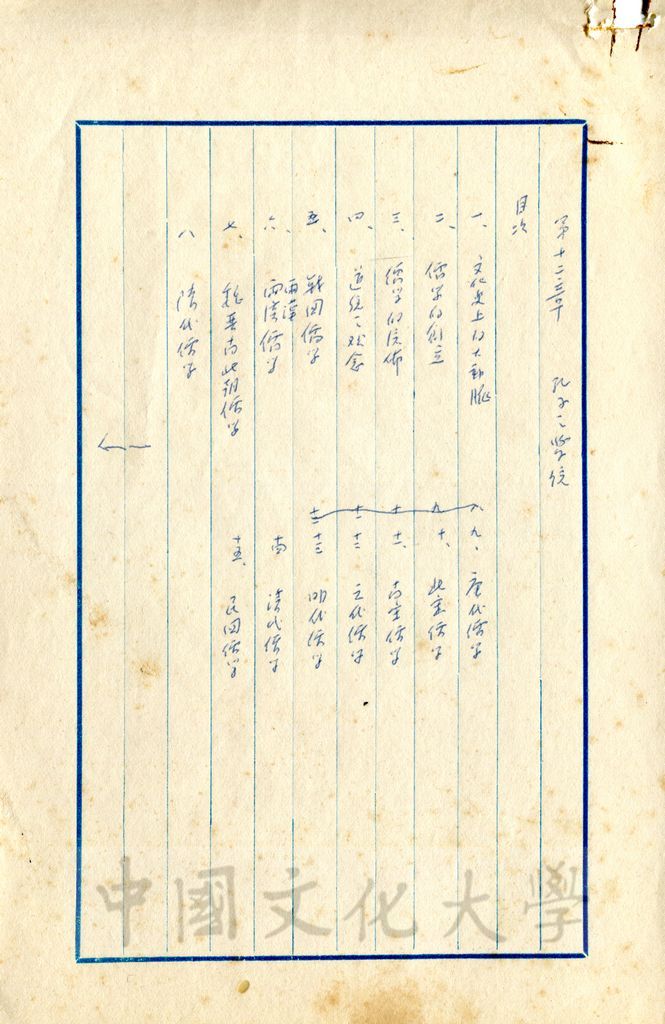 第十二章　孔子之學統
目次
一、文化史上的大動脈
二、儒学的創立
三、儒学的流佈
四、道統之观念
五、战国儒学
六、兩漢儒学
七、魏晋南北朝儒学
八　隋代儒学
九、唐代儒学
十、北宋儒学
十一、南宋儒学
十二　元代儒学
十三　明代儒学
清代儒学
十五、民国儒学
中國文化大學